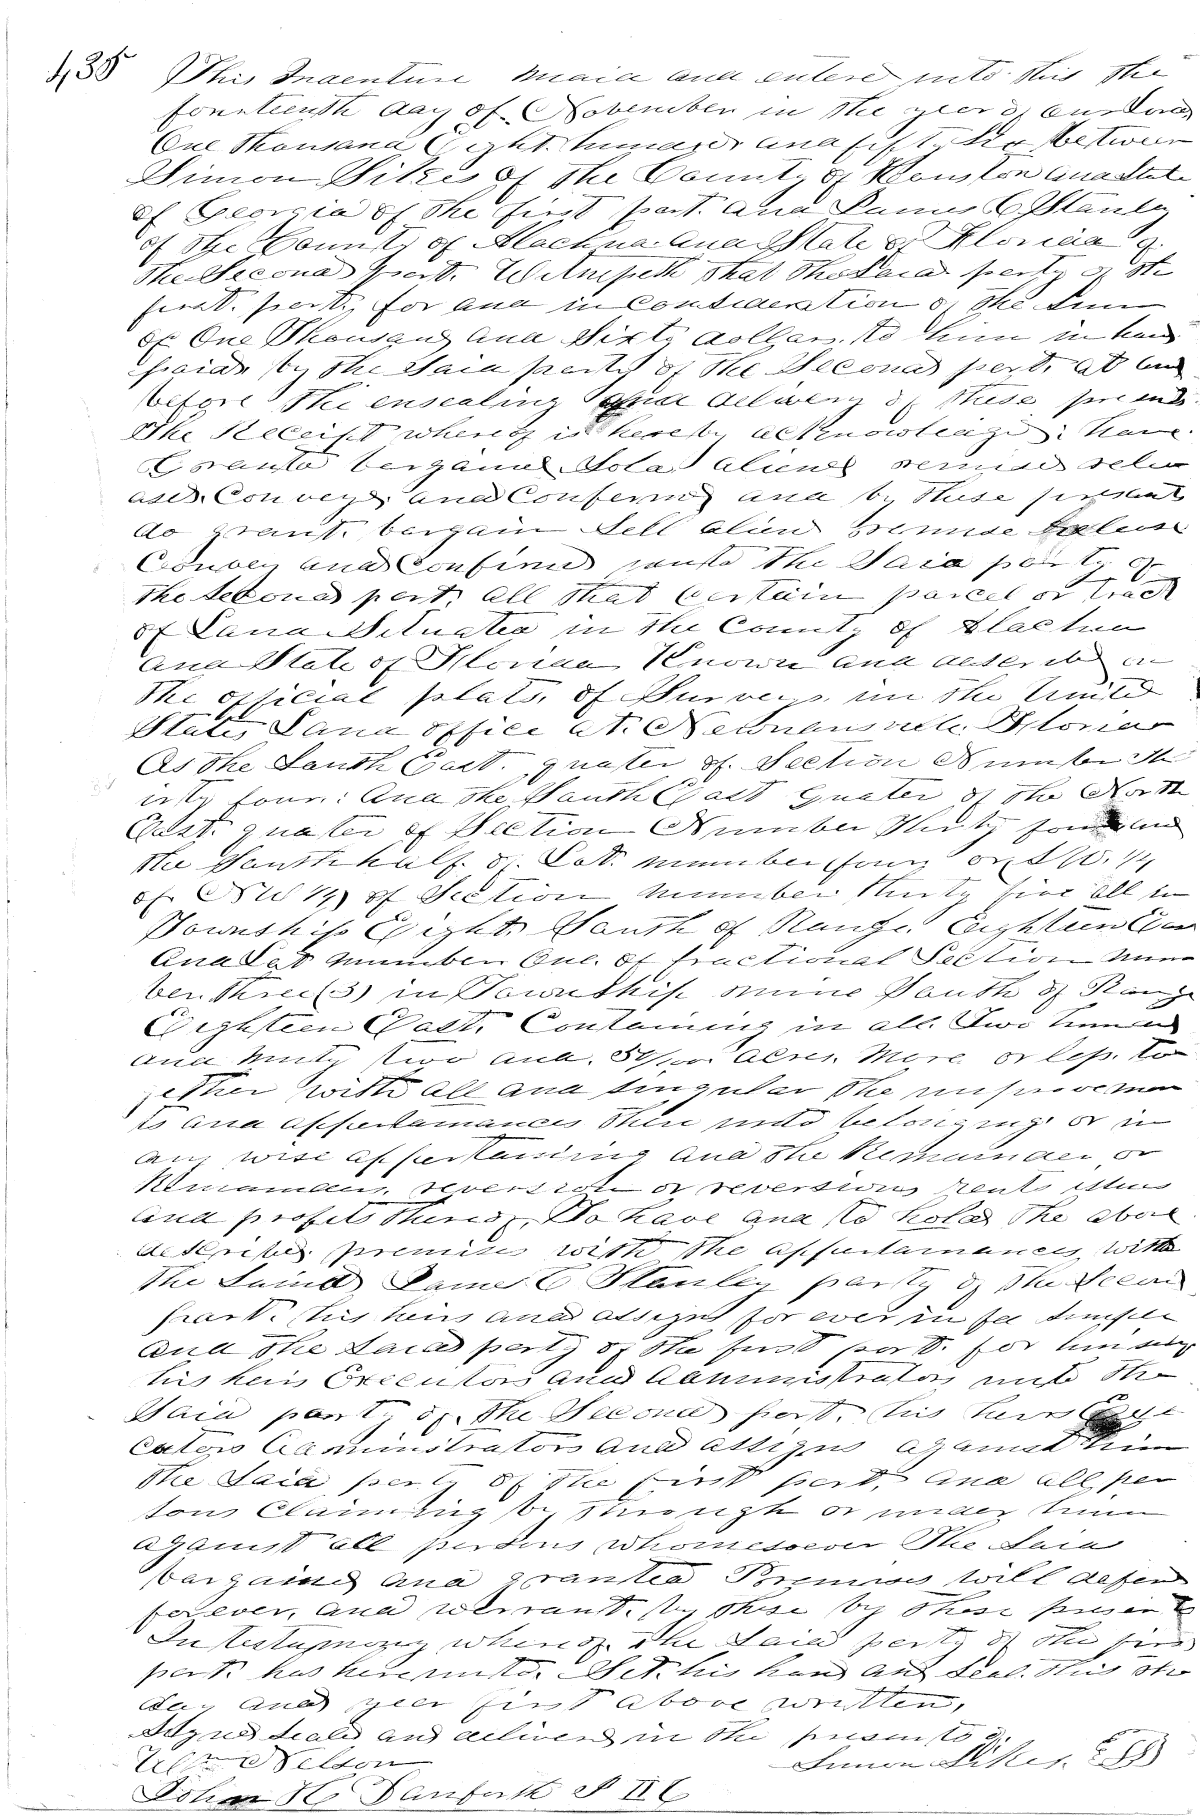 435 This Indenture maid and entered into this the
fourteenth day of November in the year of our Lord
One thousand Eight hundred and fifty Six between
Simon Sikes of the County of Houston and State
of Georgia of the first part and James C Stanley
of the County of Alachua and State of Florida of
the Second part. Witnesseth that the Said party of the
first party for and in consideration of the Sum
of One Thousand and Sixty dollars to him in hand
paid by the Said party of the Second part at and
before the ensealing and delivery of these presents
the Receipt whereof is hereby acknowledged: have
Granted bargained Sold aliened remised rele
ased. Conveyed and Confermed and by these presents
do grant. bargain Sell alien remise release
Convey and Confirmed unto the Said party of
the Second part. all that certain parcel or tract
of Land Situated in the County of Alachua
and State of Florida Known and described on
the official plats. of Surveys in the United
States Land office at Newnansville Florida
As the South East. quater of. Section Number th
irty four: And the South East quater of the North
East. quater of Section Number thirty four and
the South half of Lot. number four or (S W. 1/4
of N W 1/4) of Section number thirty five all in
Township Eight South of Range Eighteen East
And Lot number One. of fractional Section num
ber. three (3) in Township nine South of Range
Eighteen East. Containing in all. Two hundred
and ninty two and. 54/100 acres. More or less. to
gether with all and singular the improvemen
ts and appertamances there unto belonging or in
any wise appertaining and the Remainder or
Remainders. reversion or reversions rents issues
and profits thereof, To have and to hold the above
described premises with the appertamances with
the Saind James C Stanley party of the Second
part. his heirs and assigns for ever in fee simple
and the Said party of the first part. for himself
his heirs Executors and Administrators unto the
Said party of. the Second part. his heirs Exe
cutors Administrators and assigns against him
the Said party of the first part, and all per
sons Claiming by through or under him
against all persons whomesoever The Said
bargained and granted Premises will defend
forever, and warrant. by these by these presents
In testamony whereof. the Said party of the first
part. has hereunto. Set. his hand and Seal. this the
day and year first above written,
Signed Sealed and delivered in the presents of.
Wm Nelson Simon Sikes.
John H Danforth J II C